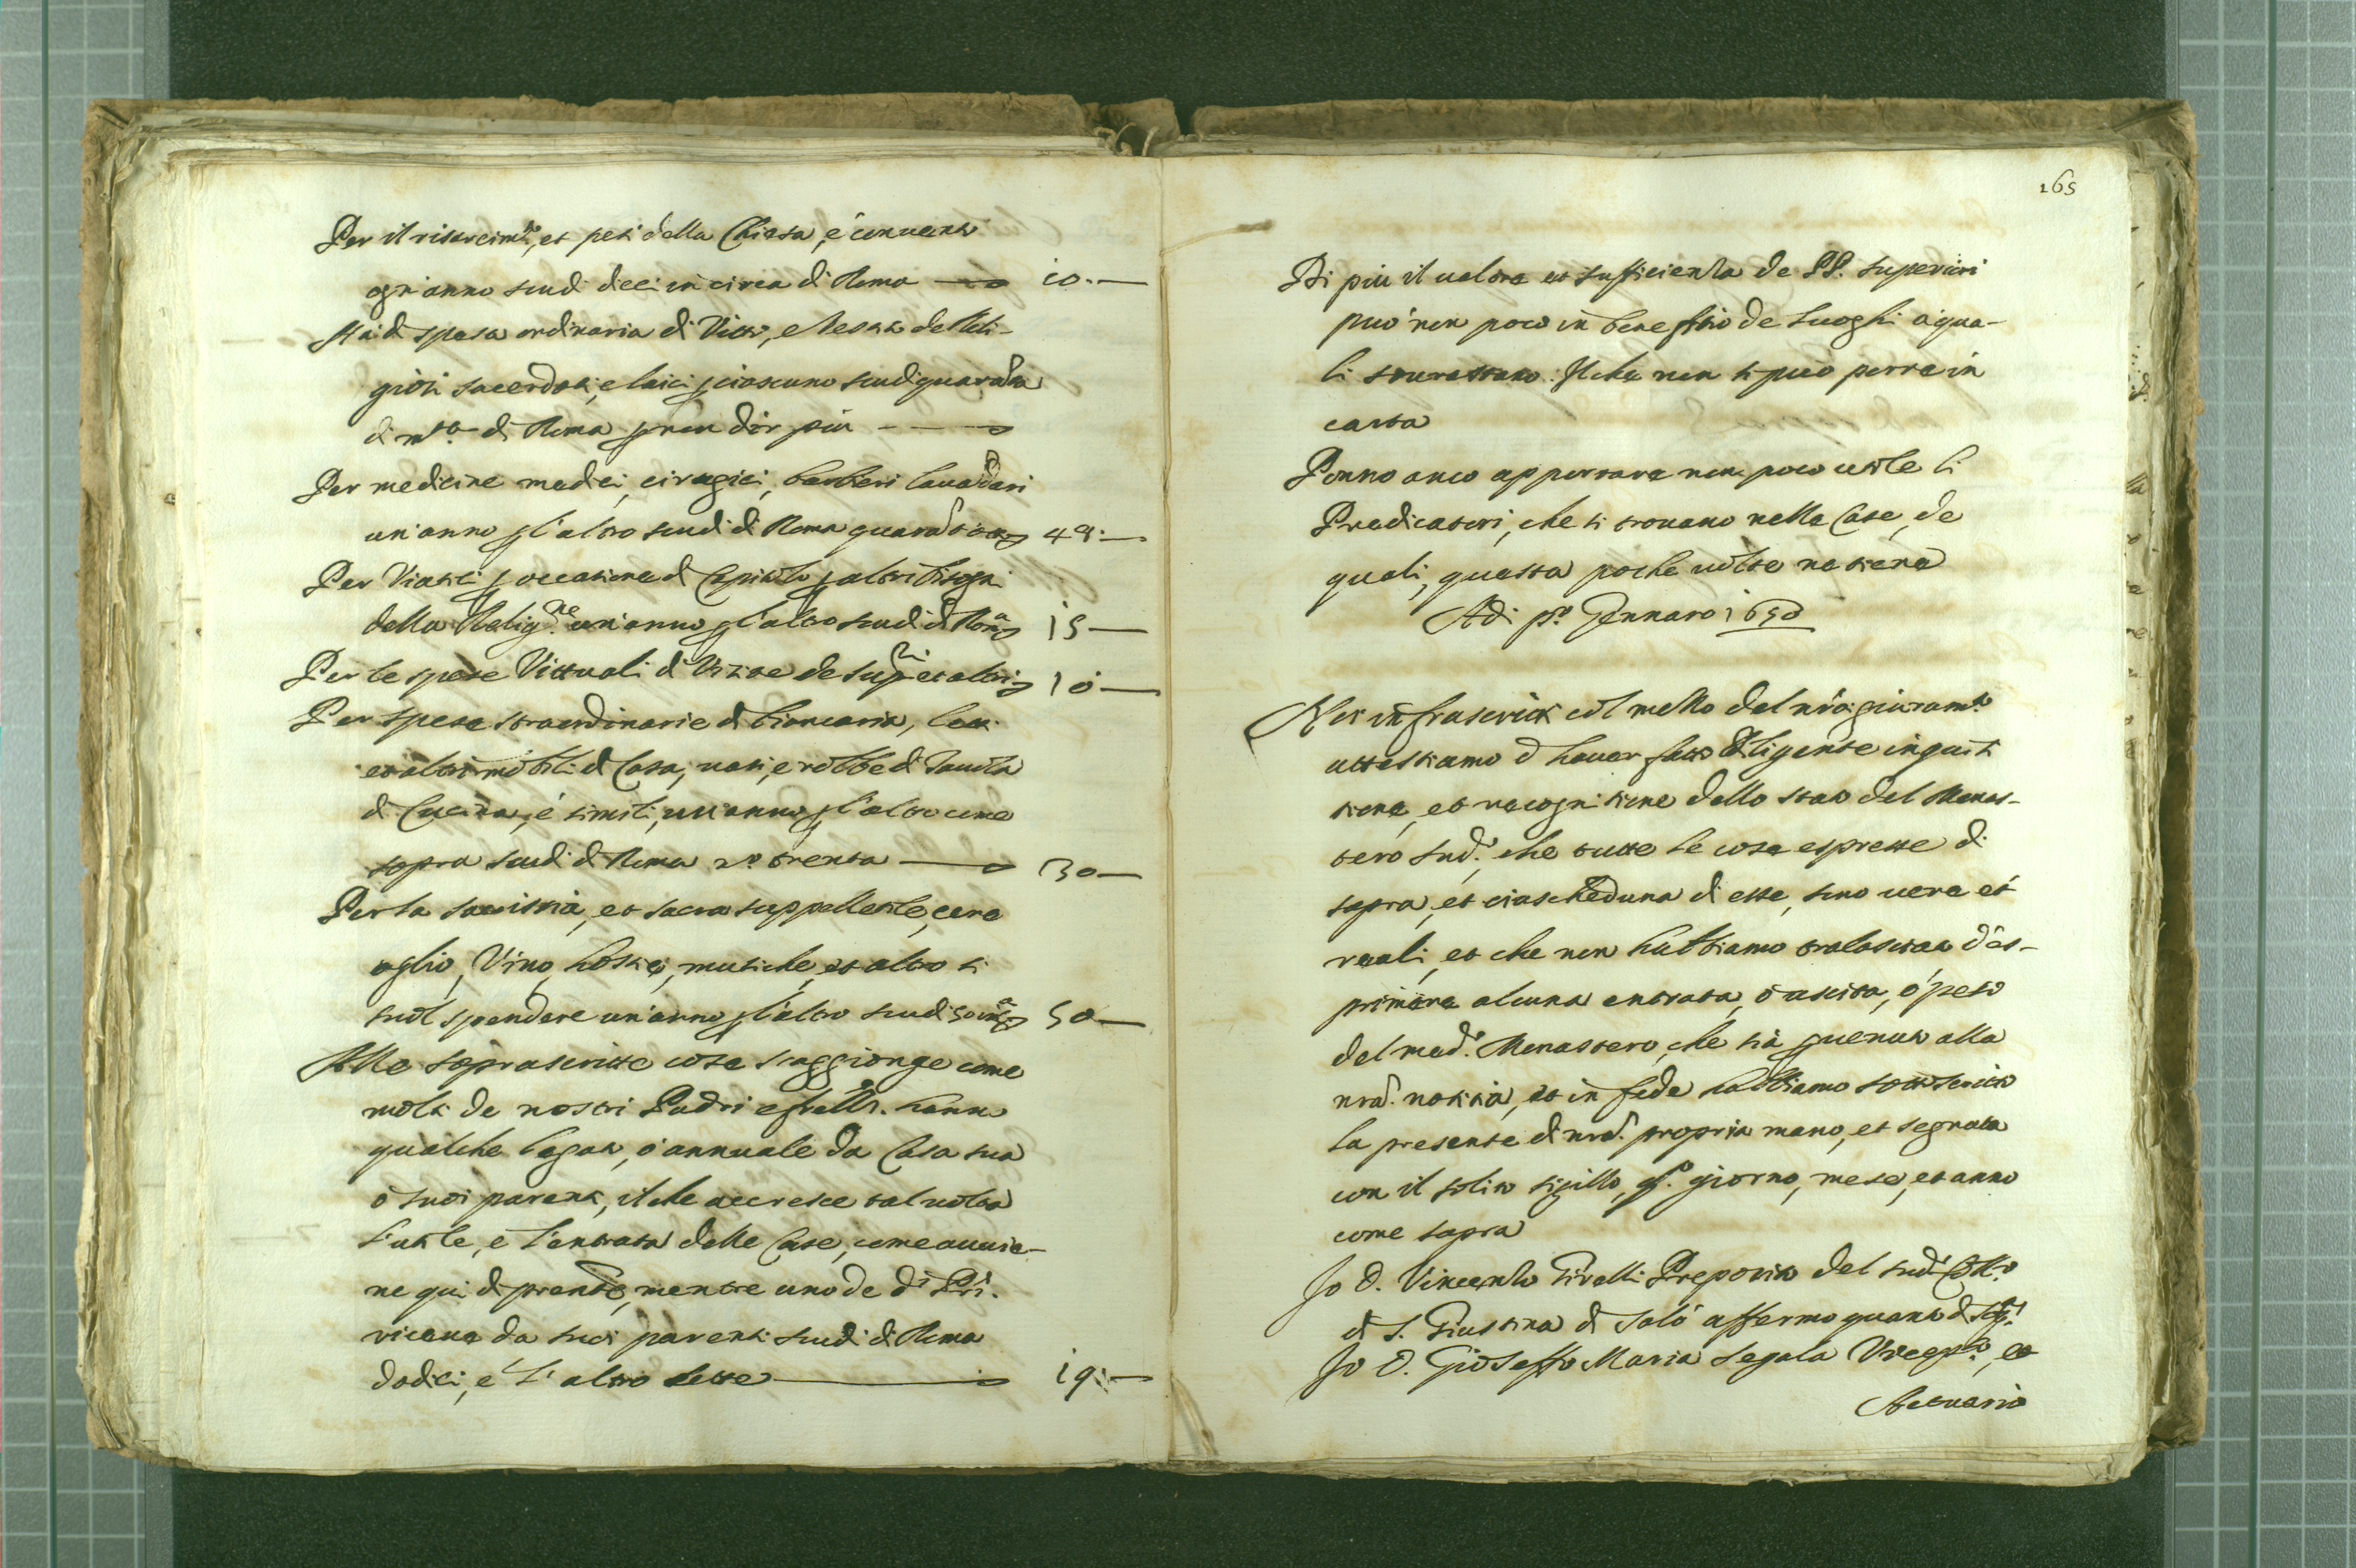 Per il risarcim.to, et pesi della Chiesa, e convento
ogn'anno scudi dieci in circa di Roma 10.—
Hà di spesa ordinaria di Vitto, e Vestito de Reli-
giosi sacerdoti, e laici p ciascuno scudi quaranta
di m.ta di Roma p non dir più
Per medicine medici, cirugici, barbieri lavandari
un'anno p l'altro scudi di Roma quarantotto 48.—
Per Viatici p occasione di Capitolo p altri bisogni
della Relig.ne un'anno p l'altro scudi di Roma 15—
Per le spese Vittuali di Visite de Sup.ri et altri 10—
Per spese straordinarie di biancaria, letti
et altri mobili di Casa, vasi, e robbe di Tavola
di Cucina, e simili, un'anno p l'altro come
sopra scudi di Roma n.o trenta 30—
Per la sacristia, et sacra suppellettile, cera
oglio, Vino, hostie, musiche, et altro si
suol spendere un'anno p l'altro scudi 50—
Alle soprascritte cose s'aggionge come
molti de nostri Padri e fratelli hanno
qualche legato, ò annuale da Casa sua
ò suoi parenti, il che accresce tal volta
l'utile, e l'entrata delle Case, come avvie-
ne qui di p̃nte, mentre uno de d.i P̃ri.
riceve da suoi parenti scudi di Roma
dodici, e l'altro sette 19.—
165
Di più il valore et sufficienza de PP. Superiori
può non poco in beneffitio de luoghi a qua-
li sourastano. Il che non si può porre in
carta
Ponno anco apportare non poco utile li
Predicatori, che si trovano nelle Case, de
quali, questa poche volte ne tiene
Adi p.o Gennaro 1650
Noi infrascritti col mezzo del nr̃o giuram.to
attestiamo d'haver fatto diligente inquisi
tione, et recognitione dello stato del Monas-
tero sud.o, che tutte le cose espresse di
sopra, et ciascheduna di esse, sono vere et
reali, et che non habbiamo tralasciato d'es-
primere alcuna entrata, ò uscita, ò peso
del med.o Monastero, che sia p̃venuto alla
nr̃a. notitia, et in fede habbiamo sottoscritto
la presente di nr̃a. propria mano, et segnata
con il solito sigillo, q.o giorno, mese, et anno
come sopra
Io D. Vincenzo Girelli Preposito del sud.o Coll.o
di S. Giustina di Salò affermo quanto di sop.a
Io D. Gioseffo Maria Segala Vicep.to, et
Attuario